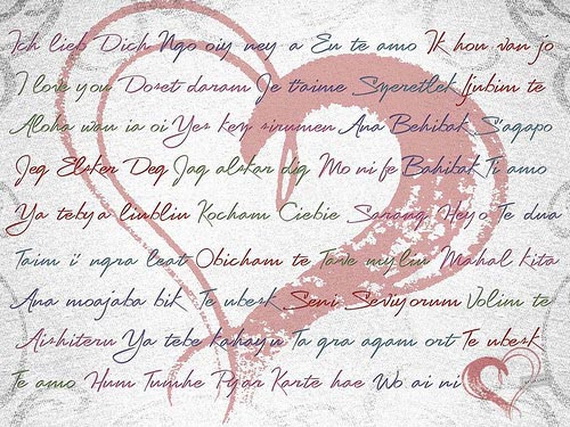 Ich lieb Dich Ngo oiy ney a Eu te amo Ik hou van jo
I love you Doset daram Je t'aime Szeretlek ljubim te
Aloha wau ia oi Yes kez sirumen Ana Behibak S'agapo
Jeg Elsker Deg Jag alskar dig Mo ni fe Bahibak Ti amo
Ya tebya liubliu Kocham Ciebie Sarang Heyo Te dua
Taim i' ngra leat Obicham te Tave myliu Mahal kita
Ana moajaba bik Te ubesk Seni Seviyorum Volim te
Aishiteru Ya tebe kahayu Ta gra agam ort Te ubesk
Te amo Hum Tumhe Pyar Karte hae Wo ai ni